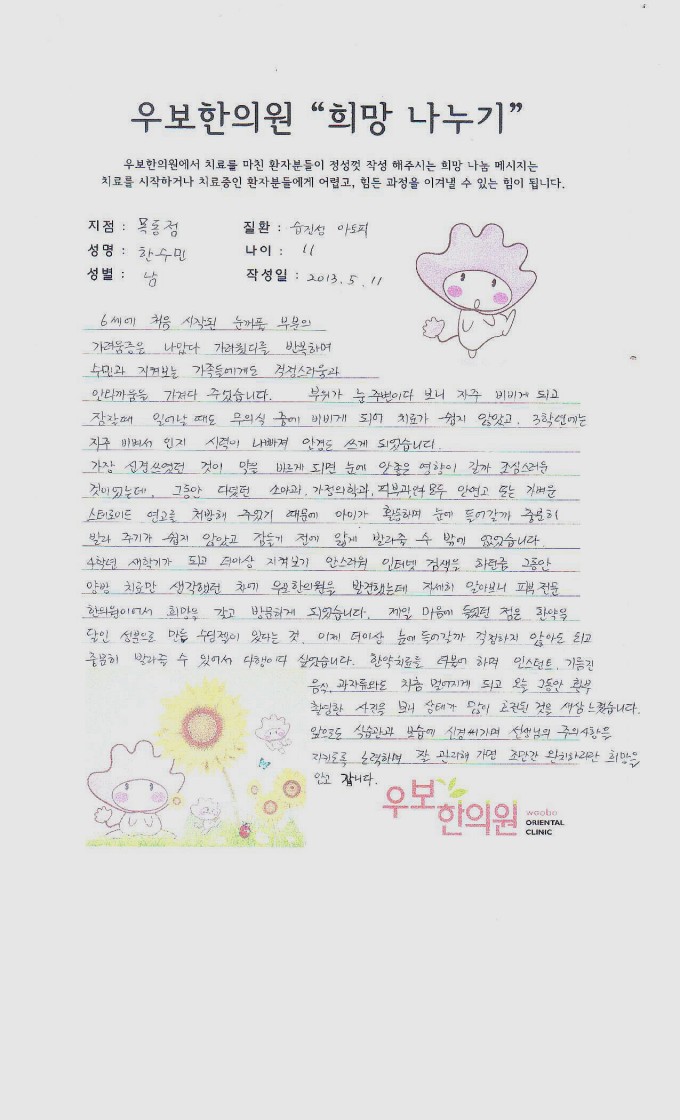 우보한의원 “희망 나누기”
우보한의원에서 치료를 마친 환자분들이 정성껏 작성 해주시는 희망 나눔 메시지는
치료를 시작하거나 치료중인 환자분들에게 어렵고, 힘든 과정을 이겨낼 수 있는 힘이 됩니다.
지점 : 목동점 질환 : 습진성 아토피
성명 : 한수민 나이 : 11
성별 : 남 작성일 : 2013. 5. 11
6세에 처음 시작된 눈꺼풀 부분의
가려움증은 나았다 가려웠다를 반복하며
수민과 지켜보는 가족들에게도 걱정스러움과
안타까움을 가져다 주었습니다. 부위가 눈 주변이다 보니 자주 비비게 되고
잠잘때 일어날 때도 무의식 중에 비비게 되어 치료가 쉽지 않았고, 3학년에는
자주 비벼서 인지 시력이 나빠져 안경도 쓰게 되었습니다.
가장 신경쓰였던 것이 약을 바르게 되면 눈에 안좋은 영향이 갈까 조심스러운
것이었는데, 그동안 다녔던 소아과, 가정의학과, 피부과에서 모두 안연고 또는 가벼운
스테로이드 연고를 처방해 주셨기 때문에 아이가 활동하며 눈에 들어갈까 충분히
발라 주기가 쉽지 않았고 잠들기 전에 얇게 발라줄 수 밖에 없었습니다.
4학년 새학기가 되고 더이상 지켜보기 안스러워 인터넷 검색을 하던중 그동안
양방 치료만 생각했던 차에 우보한의원을 발견했는데 자세히 알아보니 피부전문
한의원이어서 희망을 갖고 방문하게 되었습니다. 제일 마음에 들었던 점은 한약을
달인 성분으로 만든 수딩젤이 있다는 것. 이제 더이상 눈에 들어갈까 걱정하지 않아도 되고
충분히 발라줄 수 있어서 다행이다 싶었습니다. 한약치료를 더불어 하며 인스턴트, 기름진
음식, 과자류와도 차츰 멀어지게 되고 오늘 그동안 환부
촬영한 사진을 보니 상태가 많이 호전된 것을 새삼 느꼈습니다.
앞으로도 식습관과 보습에 신경써가며 선생님의 주의사항을
지키도록 노력하며 잘 관리해 가면 조만간 완치하리란 희망을
안고 갑니다.
우보한의원
woobo
ORIENTAL
CLINIC